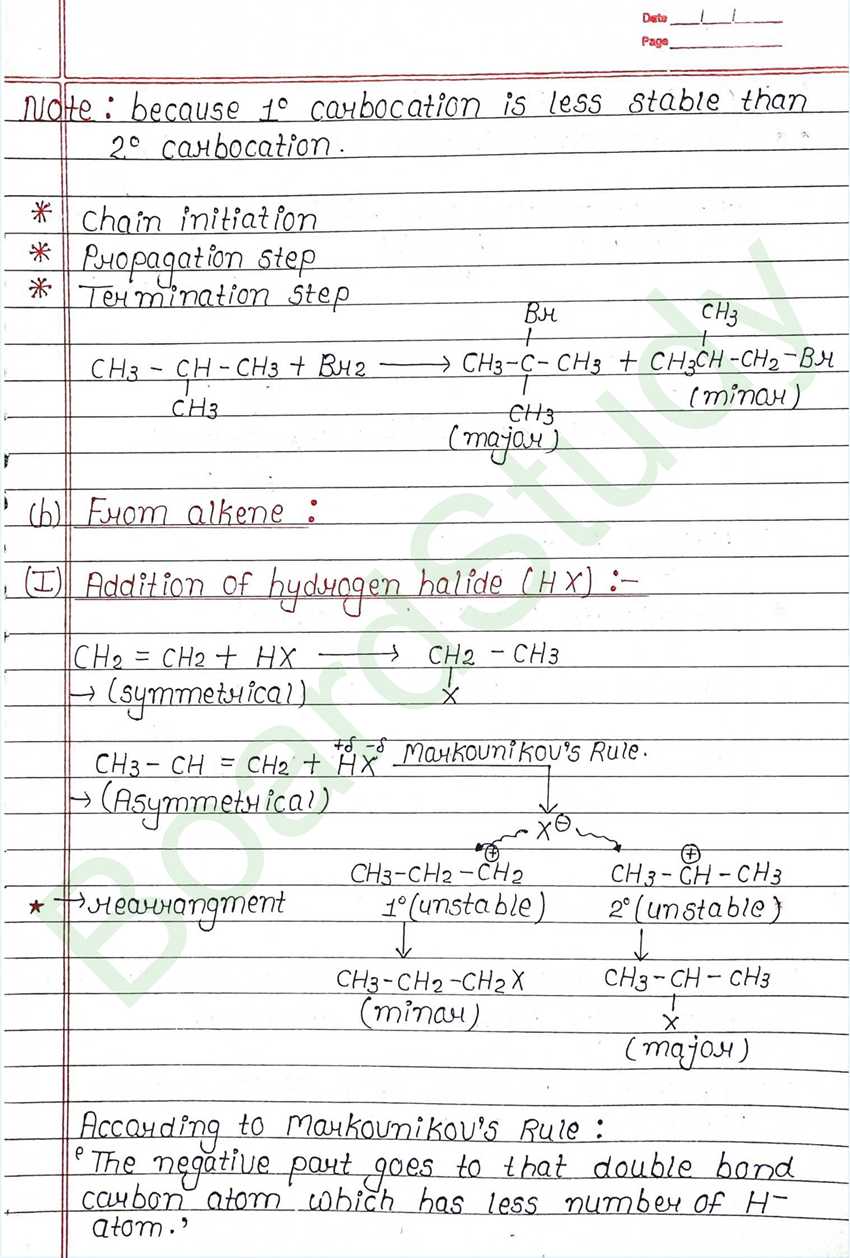 Date
Page
Note: because 1° carbocation is less stable than
2° carbocation.
* Chain initiation
* Propagation step
* Termination step
Br CH3
CH3 - CH - CH3 + Br2 ⟶ CH3-C-CH3 + CH3CH-CH2-Br
CH3 CH3 (minar)
(major)
(b) From alkene :
(I) Addition of hydrogen halide (HX) :-
CH2 = CH2 + HX ⟶ CH2 - CH3
→ (symmetrical) X
CH3 - CH = CH2 + +δ -δ HX Markounikov's Rule.
→ (Asymmetrical)
X⊖
⊕ ⊕
CH3-CH2-CH2 CH3-CH-CH3
★ → rearrangment 1° (unstable) 2° (unstable)
CH3-CH2-CH2X CH3-CH-CH3
(minar) X
(major)
According to Markounikov's Rule :
'The negative part goes to that double bond
carbon atom which has less number of H-
atom.'
BoardStudy